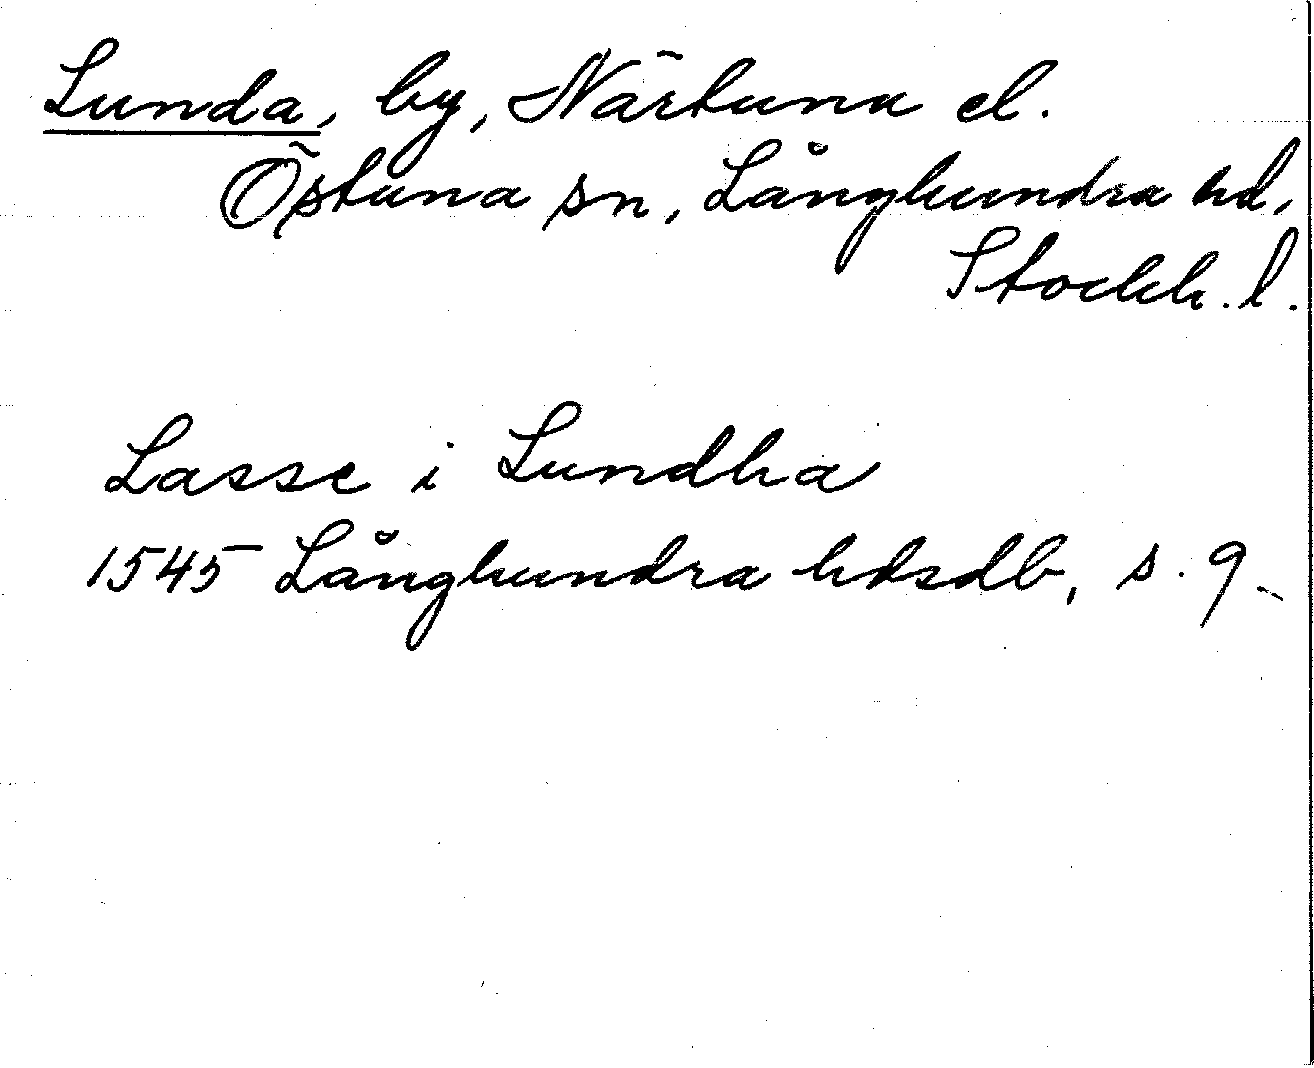 Lunda, by, Närtuna el.
Östuna sn, Långhundra hd,
Stockh. l.
Lasse i Lundha
1545 Långhundra hdsdb, s. 9.